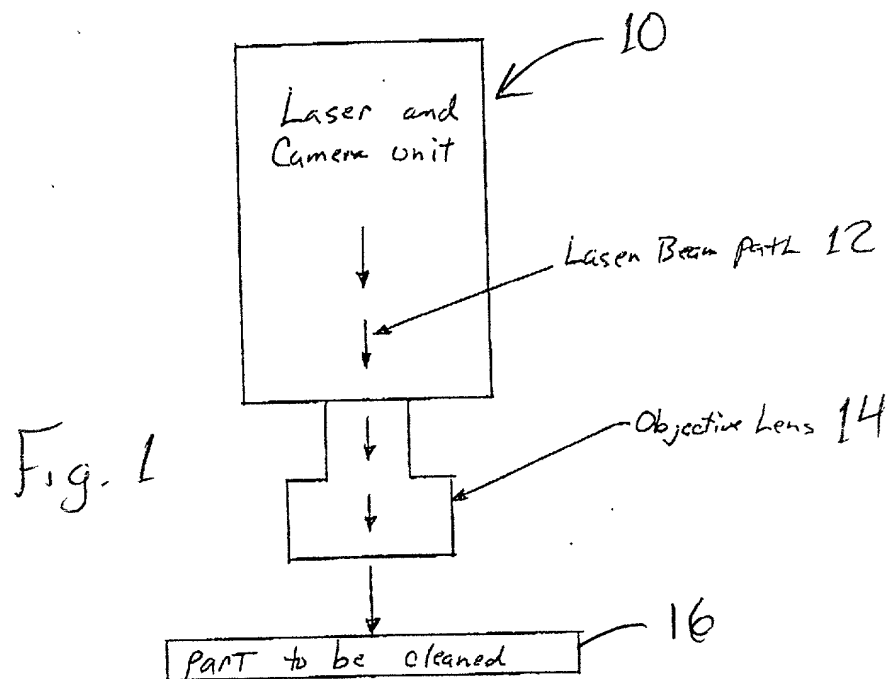 10
Laser and
Camera unit
Laser Beam Path 12
Objective Lens 14
Fig. 1
16
Part to be cleaned